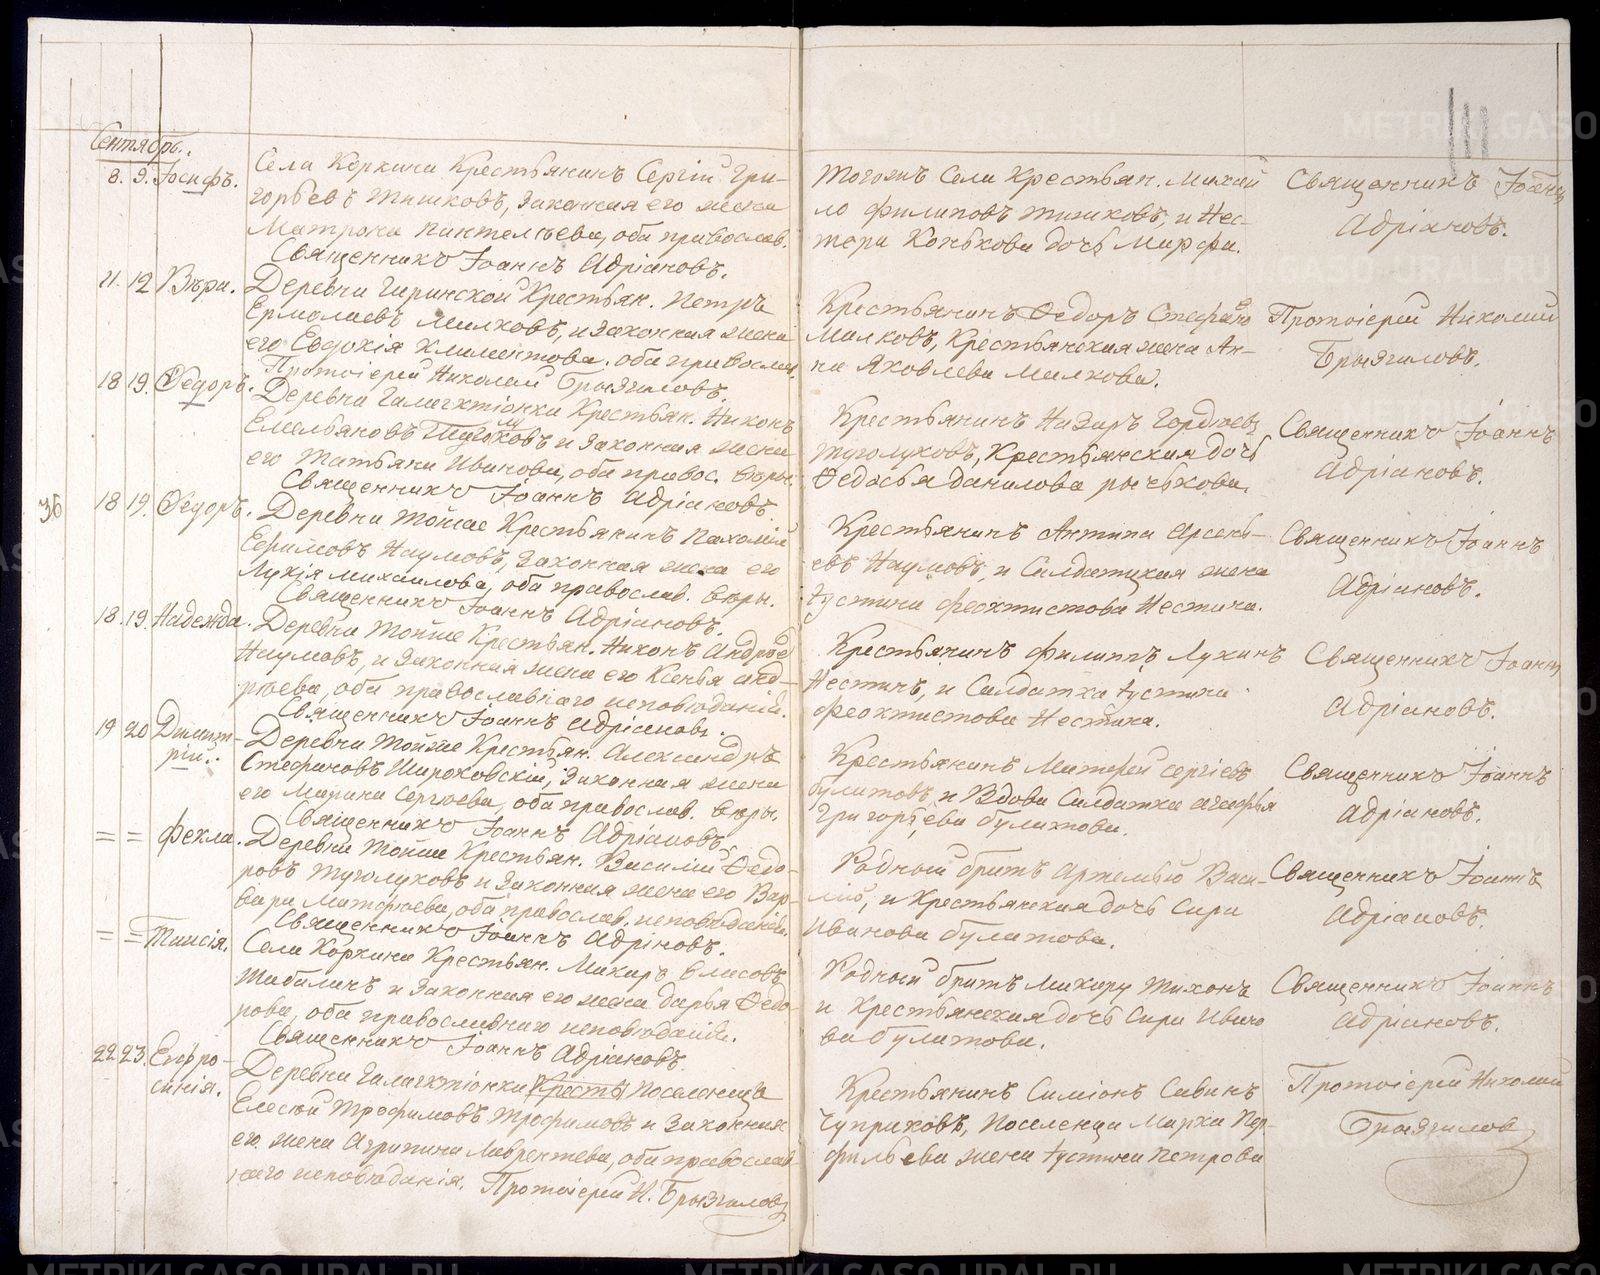 Сентябрь.
8. 9. Іосифъ.
Села Коркина Крестьянинъ Сергій Гри-
горьевъ Тишковъ, Законная его жена
Матрона Пантелѣева, оба православ.
Священникъ Іоаннъ Адріановъ.
Тогожъ Села Крестьян. Михай
ло Филиповъ Тишковъ, и Нес-
тера Конькова дочь Марфа.
Священникъ Іоаннъ
Адріановъ.
11. 12 Вѣра.
Деревни Гаринской Крестьян. Петръ
Ермолаевъ Малковъ, и Законная жена
его Евдокія Климентова. оба православ.
Протоіерей Николай Брызгаловъ.
Крестьянинъ Ѳедоръ Стефано
Малковъ, Крестьянская жена Ан-
на Яковлева Малкова.
Протоіерей Николай
Брызгаловъ.
18 19. Ѳедоръ.
Деревни Галактіонки Крестьян. Никонъ
Емельяновъ Туголуковъ и Законная жена
его Татьяна Иванова, оба правос. вѣры.
Священникъ Іоаннъ Адріановъ.
Крестьянинъ Назаръ Гордѣевъ
Туголуковъ, Крестьянская дочь
Ѳедосья Данилова Рычькова.
Священникъ Іоаннъ
Адріановъ.
36
18 19. Ѳедоръ.
Деревни Тойше Крестьянинъ Пахомій
Ефимовъ Наумовъ, Законная жена его
Лукія Михайлова, оба православ. вѣры.
Священникъ Іоаннъ Адріановъ.
Крестьянинъ Антипа Арсень-
евъ Наумовъ, и Салдатцкая жена
Іустина Феоктистова Нестина.
Священникъ Іоаннъ
Адріановъ.
18. 19. Надежда.
Деревни Тойше Крестьян. Никонъ Андрѣев
Наумовъ, и Законная жена его Ксенья Анд-
рѣева, оба православнаго исповѣданія.
Священникъ Іоаннъ Адріановъ.
Крестьянинъ Филиппъ Лукинъ
Нестинъ, и Салдатка Іустина
Феоктистова Нестина.
Священникъ Іоаннъ
Адріановъ.
19 20 Димит-
рій.
Деревни Тойше Крестьян. Александръ
Стефановъ Широковскій, Законная жена
его Марина Сергѣева, оба православ. вѣры.
Священникъ Іоаннъ Адріановъ.
Крестьянинъ Матфей Сергіевъ
Булатовъ, и Вдова Салдатка Агафья
Григорьева Булатова.
Священникъ Іоаннъ
Адріановъ.
= = Фекла.
Деревни Тойше Крестьян. Василій Ѳедо-
ровъ Туголуковъ и Законная жена его Вар-
вара Матфѣева, оба православ. исповѣданія.
Священникъ Іоаннъ Адріновъ.
Родной братъ Артемью Васи-
лій, и Крестьянская дочь Сара
Иванова Булатова.
Священникъ Іоаннъ
Адріановъ.
= = Таисія.
Села Коркина Крестьян. Макаръ Власовъ
Табалинъ и Законная его жена Дарья Ѳедо-
рова, оба православнаго исповѣданія.
Священникъ Іоаннъ Адріановъ.
Родной братъ Макару Тихонъ
и Крестьянская дочь Сара Ивано
ва Булатова.
Священникъ Іоаннъ
Адріановъ.
22 23. Евфро-
синія.
Деревни Галактіонки Кресть Поселенецъ
Елесѣй Трофимовъ Трофимовъ и Законная
его жена Агрипина Лаврентева, оба православ
наго исповѣданія. Протоіерей Н. Брызгаловъ
Крестьянинъ Симіонъ Савинъ
Чуприковъ, Поселенца Марка Пер-
фильева жена Іустина Петрова
Протоіерей Николай
Брызгалов